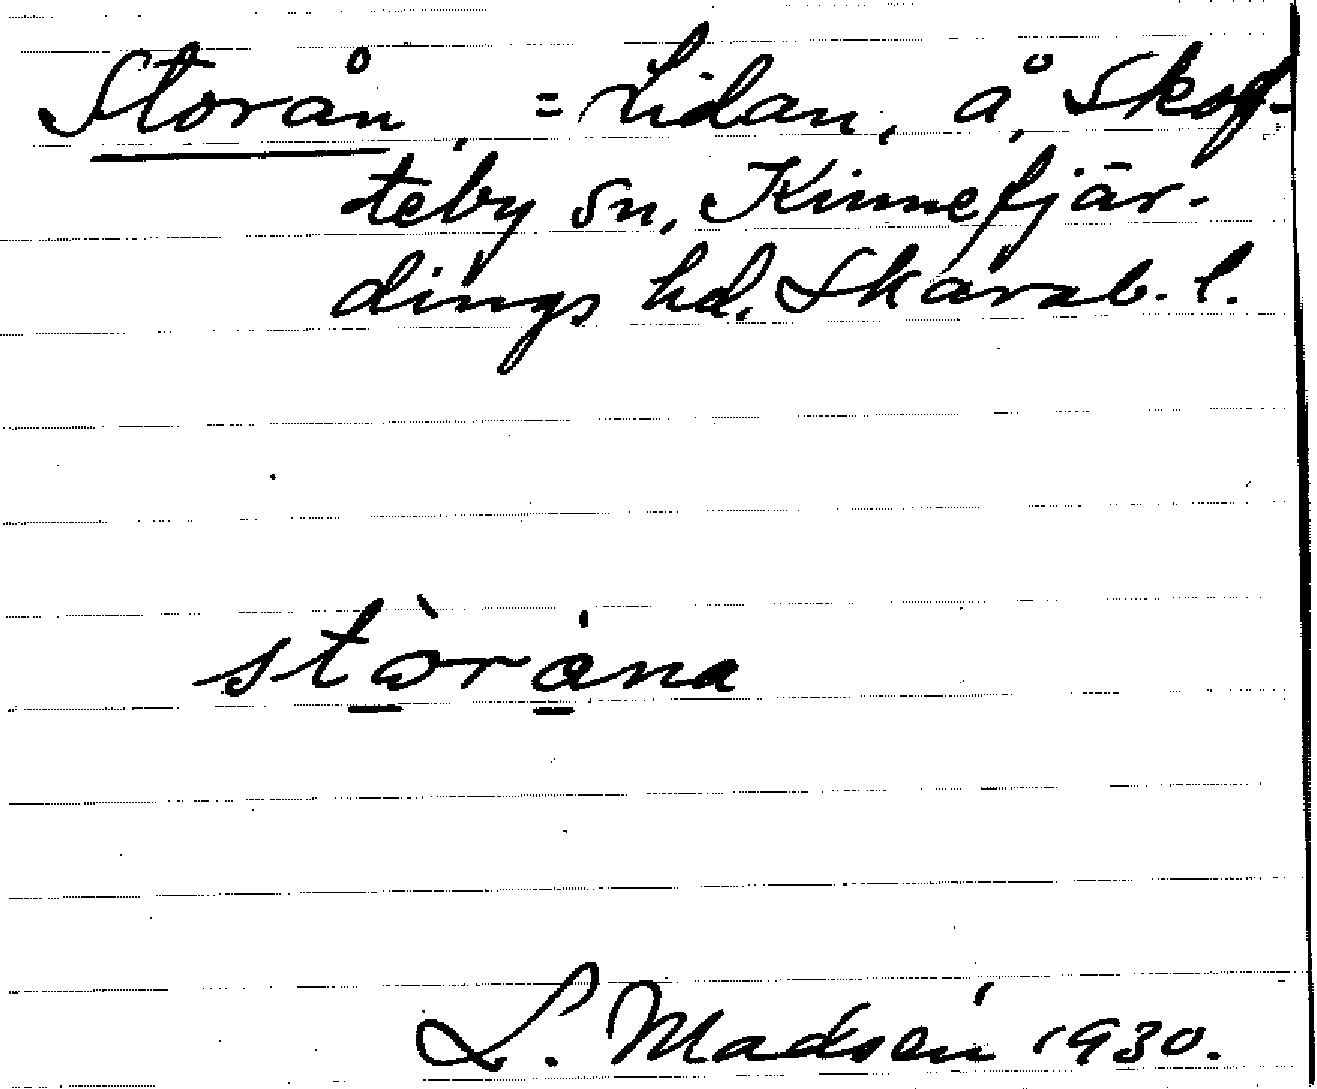 Storån, = Lidan, å, Skof-
teby sn, Kinnefjär-
dings hd, Skarab. l.
stòrȧna
L. Madsén 1930.